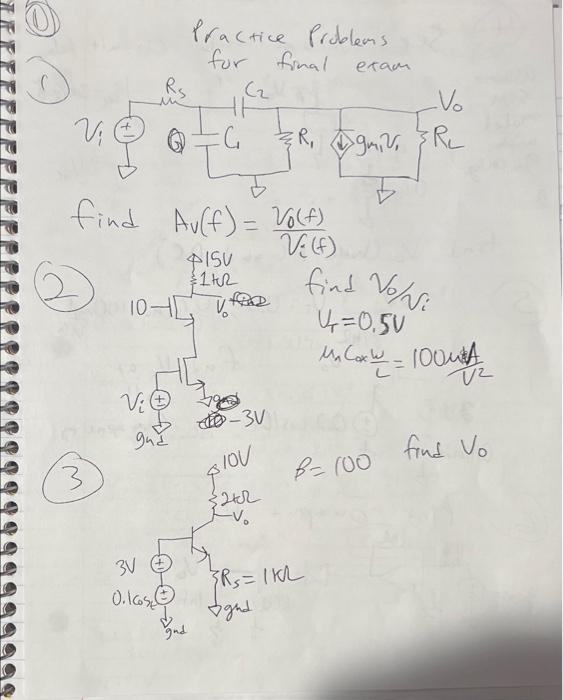 Practice Problems
for final exam
①
Rs
C2
Vo
Vi
C1
R1
gm1V1
RL
find Av(f) = Vo(f)/Vi(f)
②
15V
1kΩ
10
Vo
find Vo/Vi
VT=0.5V
μnCox W/L = 100
A/V2
Vi
-3V
gnd
③
10V
β=100
find Vo
2kΩ
Vo
3V
Rs=1kΩ
0.1cost
gnd
gnd